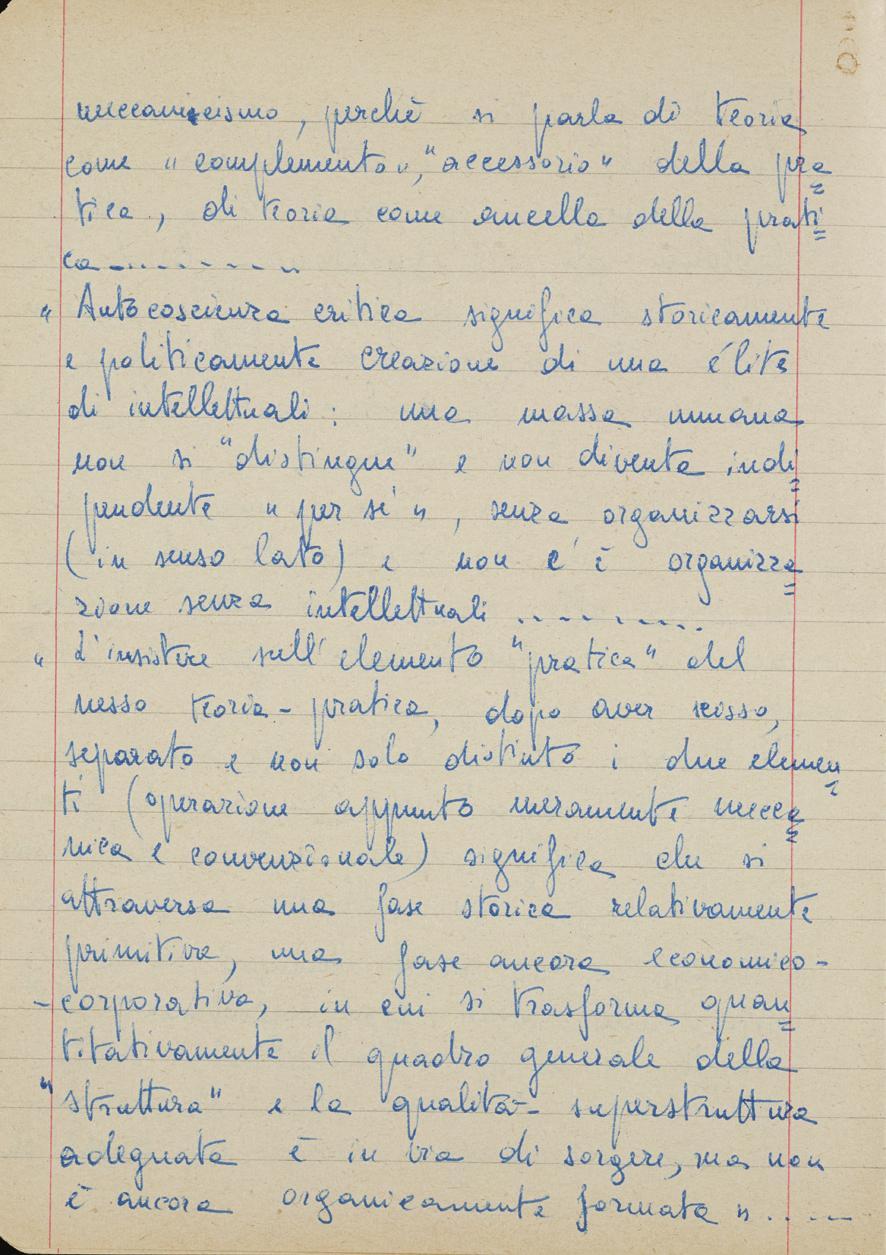 meccanicismo, perchè si parla di teoria
come "complemento", "accessorio" della pra=
tica, di teoria come ancella della prati=
ca..........
" Autocoscienza critica significa storicamente
e politicamente creazione di una élite
di intellettuali: una massa umana
non si "distingue" e non diventa indi=
pendente "per sé", senza organizzarsi
(in senso lato) e non c'è organizza=
zione senza intellettuali .........
" L'insistere sull'elemento "pratica" del
nesso teoria-pratica, dopo aver scisso,
separato e non solo distinto i due elemen=
ti (operazione appunto meramente mecca=
nica e convenzionale) significa che si
attraversa una fase storica relativamente
primitiva, una fase ancora economico-
-corporativa, in cui si trasforma quan=
titativamente il quadro generale della
"struttura" e la qualità-superstruttura
adeguata è in via di sorgere, ma non
è ancora organicamente formata".....